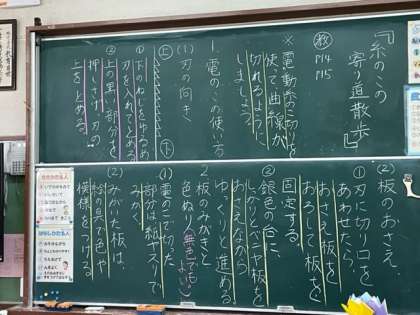 『糸のこの
寄り道散歩』
教 P14 P15
※電動糸の切りを
使って曲線が
切れるように
しましょう。
1.電のこの使い方
(1)刃の向き
上
下
①下のねじをゆるめ
刃を入れてとめる
②上の黒い部分を
押しさげ、刃の
上をとめる。
(2)板のおさえ.
①刃に切り口を
あわせたら、
おさえ板を
おろして板を
固定する。
②銀色の台に、
しっかりとベニヤ板を
おさえながら
ゆっくりと進める
2.板のみがきと
色ぬり
無色でも
よい。
(1)電のこで切った
部分は紙やすりで
みがく。
(2)みがいた板は、
絵の具で色や
模様をつける